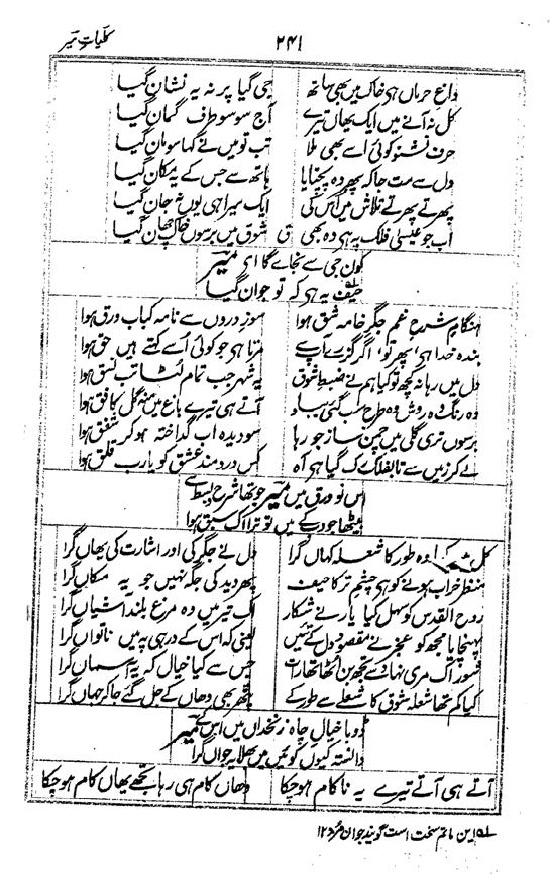 کلیاتِ میر
۲۴۱
داغِ حرماں ہی خاک میں بھی ساتھ جی گیا پر نہ یہ نشان گیا
کل نہ آنے میں ایک یھاں تیرے آج سو سو طرف گمان گیا
حرف نشنو کوئی اسے بھی ملا تب تو میں نے کہا سو مان گیا
دل سے مت جا کہ پھر وہ پچتایا ہاتھ سے جس کے یہ مکان گیا
پھرتے پھرتے تلاش میں اس کی ایک میرا ہی یوں نہ جان گیا
اب جو عیسیٰ فلک پہ ہی وہ بھی شوق میں برسوں خاک چھان گیا
کون جی سے نجائے گا ای میر
حیف یہ ہی کہ تو جوان گیا
ہنگامِ شرحِ غم جگرِ خامہ شق ہوا سوزِ دروں سے نامہ کباب ورق ہوا
بندہ خدا ہی پھر تو اگر گزرے آپ سے مرتا ہی جو کوئی اسے کہتے ہیں حق ہوا
دل میں رہا نہ کچھ تو کیا ہم نے ضبطِ شوق یہ شہر جب تمام لٹا تب نسق ہوا
وہ رنگ وہ روش وہ طرح سب گئی بباد آتے ہی تیرے باغ میں منھ گل کا فق ہوا
برسوں تری گلی میں چمن ساز جو رہا سو دیدہ اب گداختہ ہو کر شفق ہوا
لے کر زمیں سے تا بفلک رک گیا ہی آہ کس دردمندِ عشق کو یارب قلق ہوا
اس نو ورق میں میر جو تھا شرح و بسط سے
بیٹھا جو دب کے میں تو ترا اک سبق ہوا
کل وہ طور کا شعلہ کہاں گرا دل نے جگر کی اور اشارت کی یھاں گرا
منظر خراب ہونے کو ہی چشمِ تر کا حیف پھر دید کی جگہ نہیں جو یہ مکاں گرا
روح القدس کو سہل کیا یار نے شکار اک تیر میں وہ مرغِ بلند آشیاں گرا
پہنچایا مجھ کو عجز نے مقصودِ دل کے تئیں یعنی کہ اس کے در ہی پہ میں ناتواں گرا
شور اک مری نہاد سے تجھ بن اٹھا تھا رات جس سے کیا خیال کہ یہ آسماں گرا
کیا کم تھا شعلہ شوق کا شعلے سے طور کے پتھر بھی وھاں کے جل گئے جا کر جہاں گرا
ڈوبا خیالِ چاہِ زنخداں میں اس کے میر
دانستہ کیوں کوئیں میں بھلا یہ جواں گرا
آتے ہی آتے تیرے یہ ناکام ہو چکا وھاں کام ہی رہا تجھے یھاں کام ہو چکا
این ماتم سخت است گویند جوان مرد ۱۲